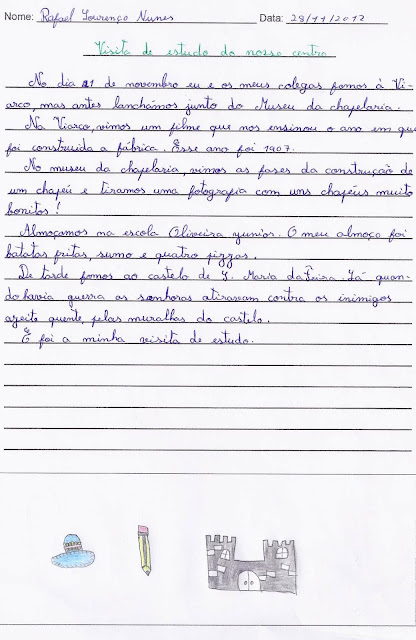 Nome: Rafael Lourenço Nunes Data: 28/11/2012
Visita de estudo do nosso centro
No dia 21 de novembro eu e os meus colegas fomos à Vi-
arco, mas antes lanchámos junto do Museu da chapelaria.
Na Viarco, vimos um filme que nos ensinou o ano em que
foi construida a fábrica. Esse ano foi 1907.
No museu da chapelaria, vimos as fases da construção de
um chapéu e tiramos uma fotografia com uns chapéus muito
bonitos!
Almoçamos na escola Oliveira Junior. O meu almoço foi
batatas fritas, sumo e quatro pizzas.
De tarde fomos ao castelo de S. Maria da Feira. Lá quan-
do havia guerra as senhoras atiravam contra os inimigos
azeite quente, pelas muralhas do castelo.
E foi a minha visita de estudo.